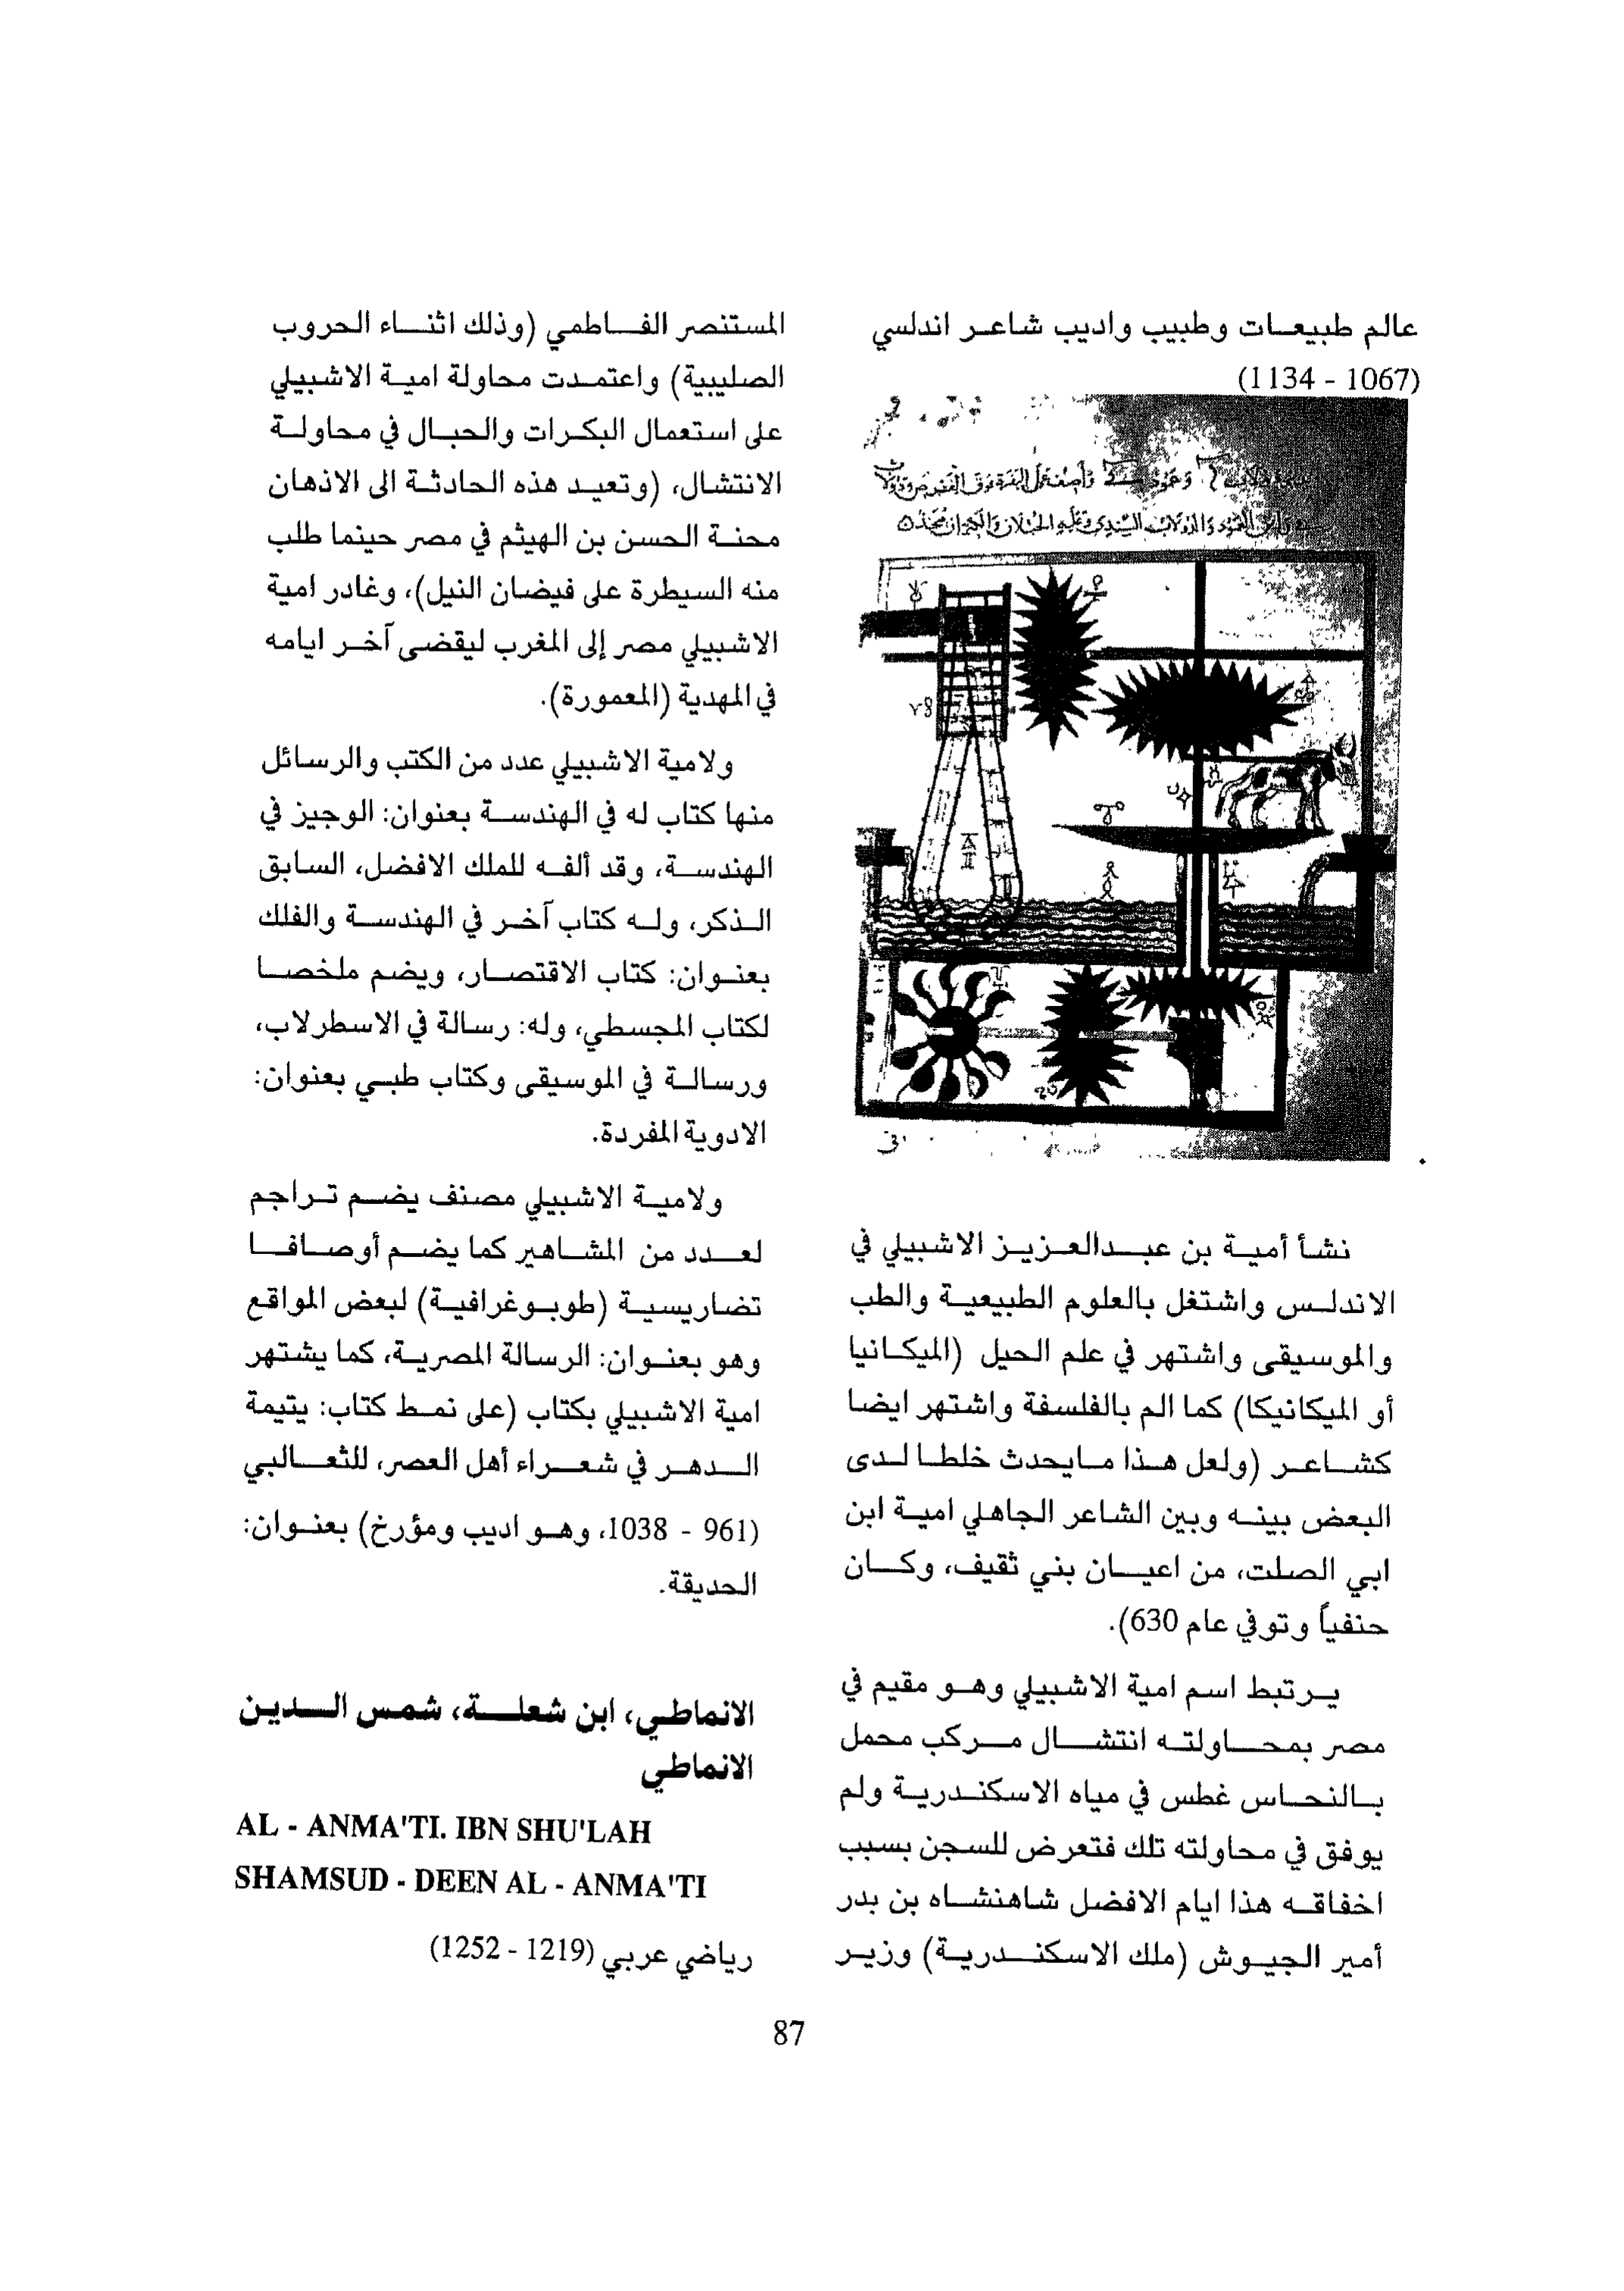 عالم طبيعات وطبيب واديب شاعر اندلسي
(1067 - 1134)
نشأ أمية بن عبدالعزيز الاشبيلي في
الاندلس واشتغل بالعلوم الطبيعية والطب
والموسيقى واشتهر في علم الحيل (الميكانيا
أو الميكانيكا) كما الم بالفلسفة واشتهر ايضا
كشاعر (ولعل هذا مايحدث خلطا لدى
البعض بينه وبين الشاعر الجاهلي امية ابن
ابي الصلت، من اعيان بني ثقيف، وكان
حنفياً وتوفي عام 630).
يرتبط اسم امية الاشبيلي وهو مقيم في
مصر بمحاولته انتشال مركب محمل
بالنحاس غطس في مياه الاسكندرية ولم
يوفق في محاولته تلك فتعرض للسجن بسبب
اخفاقه هذا ايام الافضل شاهنشاه بن بدر
أمير الجيوش (ملك الاسكندرية) وزير
المستنصر الفاطمي (وذلك اثناء الحروب
الصليبية) واعتمدت محاولة امية الاشبيلي
على استعمال البكرات والحبال في محاولة
الانتشال، (وتعيد هذه الحادثة الى الاذهان
محنة الحسن بن الهيثم في مصر حينما طلب
منه السيطرة على فيضان النيل)، وغادر امية
الاشبيلي مصر إلى المغرب ليقضى آخر ايامه
في المهدية (المعمورة).
ولامية الاشبيلي عدد من الكتب والرسائل
منها كتاب له في الهندسة بعنوان: الوجيز في
الهندسة، وقد ألفه للملك الافضل، السابق
الذكر، وله كتاب آخر في الهندسة والفلك
بعنوان: كتاب الاقتصار، ويضم ملخصا
لكتاب المجسطي، وله: رسالة في الاسطرلاب،
ورسالة في الموسيقى وكتاب طبي بعنوان:
الادوية المفردة.
ولامية الاشبيلي مصنف يضم تراجم
لعدد من المشاهير كما يضم أوصافا
تضاريسية (طوبوغرافية) لبعض المواقع
وهو بعنوان: الرسالة المصرية، كما يشتهر
امية الاشبيلي بكتاب (على نمط كتاب: يتيمة
الدهر في شعراء أهل العصر، للثعالبي
(961 - 1038، وهو اديب ومؤرخ) بعنوان:
الحديقة.
الانماطي، ابن شعلة، شمس الدين
الانماطي
AL - ANMA'TI. IBN SHU'LAH
SHAMSUD - DEEN AL - ANMA'TI
رياضي عربي (1219 - 1252)
87